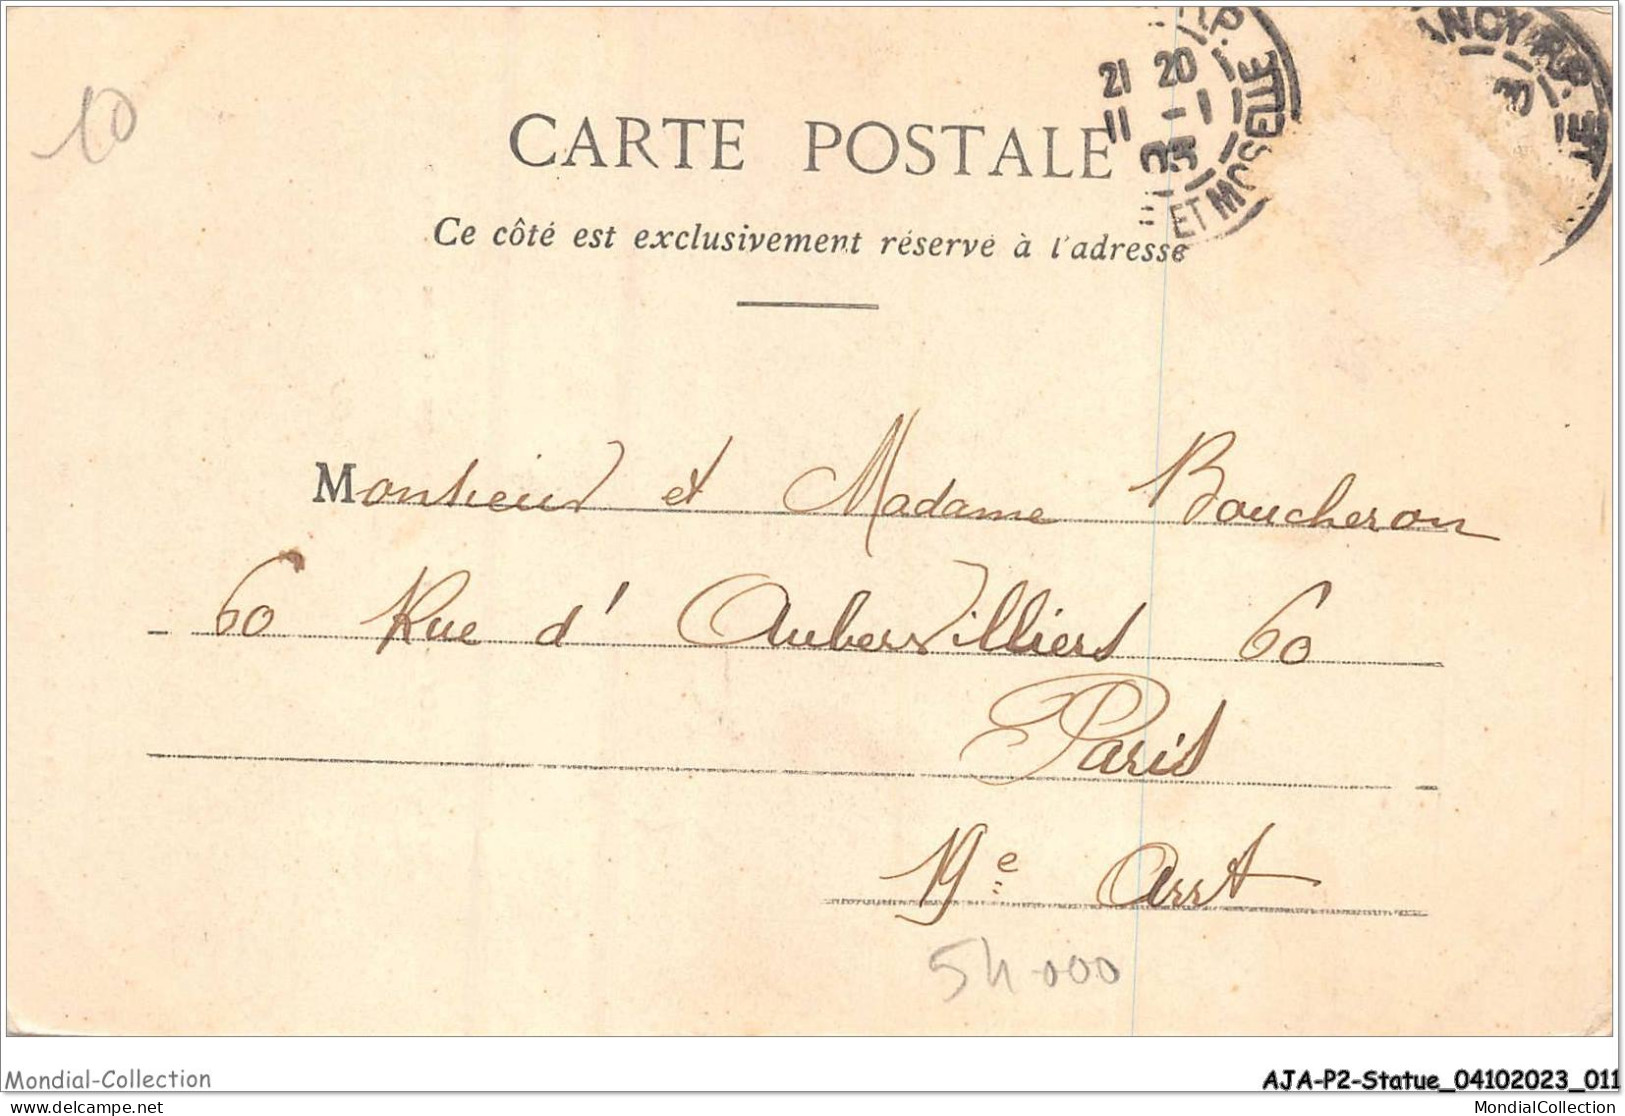 10
CARTE POSTALE
Ce côté est exclusivement réservé à l'adresse
21 20
11 - 1
ET MOSELLE
ANCY
Monsieur et Madame Boucheron
60 Rue d'Aubervilliers 60
Paris
19e Arrt
54.000
Mondial-Collection
AJA-P2-Statue_04102023_011
MondialCollection